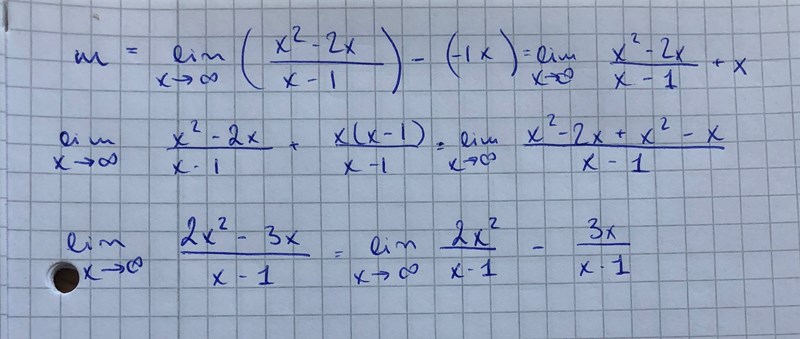 m = lim x→∞ ( (x² - 2x)/(x - 1) ) - (-1x) = lim x→∞ (x² - 2x)/(x - 1) + x
lim x→∞ (x² - 2x)/(x - 1) + x(x - 1)/(x - 1) = lim x→∞ (x² - 2x + x² - x)/(x - 1)
lim x→∞ (2x² - 3x)/(x - 1) = lim x→∞ 2x²/(x - 1) - 3x/(x - 1)